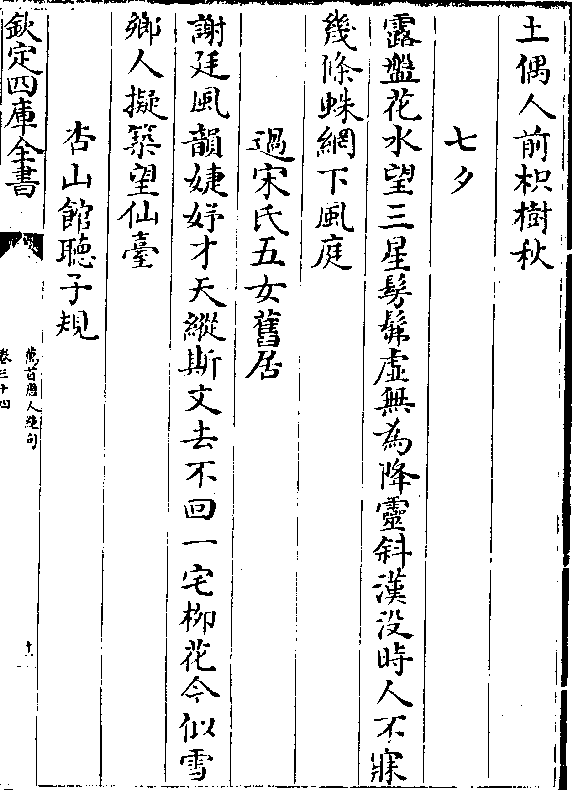 土偶人前枳樹秋
七夕
露盤花水望三星髣髴虛無為降靈斜漢没時人不寐
幾條蛛網下風庭
過宋氏五女舊居
謝廷風韻婕妤才天縱斯文去不回一宅栁花今似雪
鄉人擬築望仙臺
杏山館聽子規
欽定四庫全書
萬首唐人絶句
卷三十四